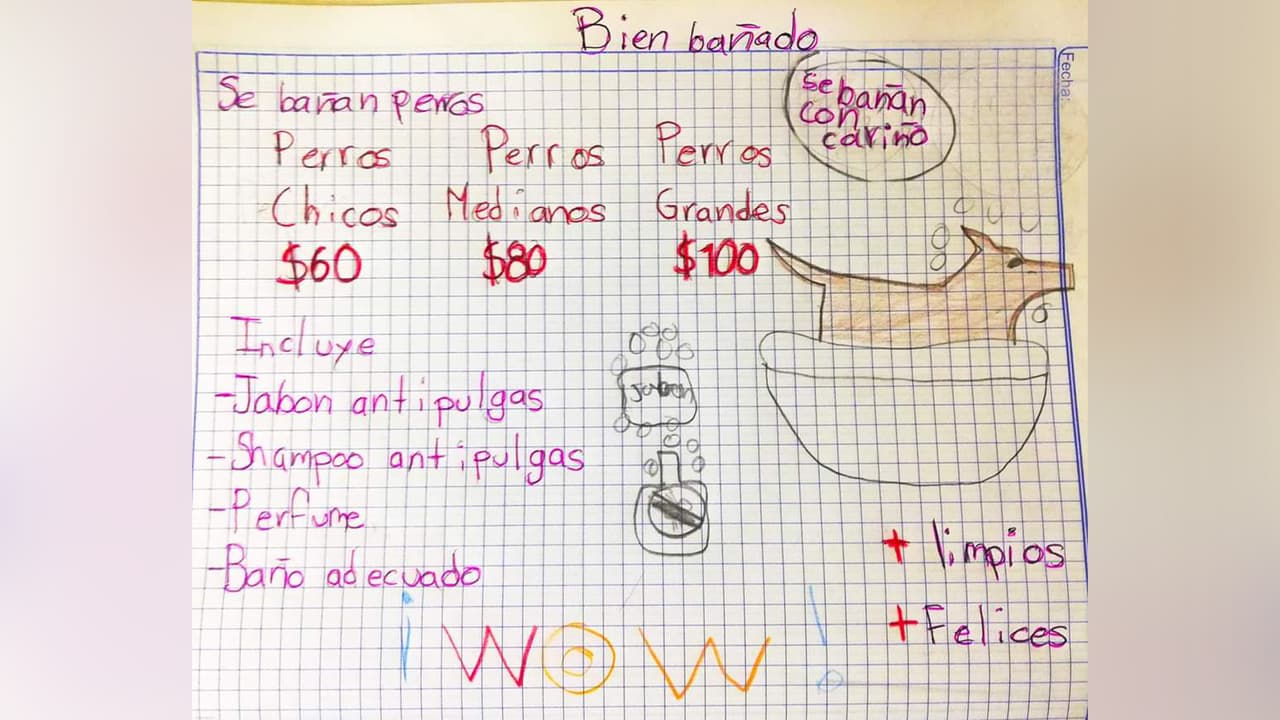 Bien bañado
Fecha:
Se bañan perros
Se bañan
con
cariño
Perros Perros Perros
Chicos Medianos Grandes
$60 $80 $100
Incluye
-Jabon antipulgas
Jabon
-Shampoo antipulgas
-Perfume
-Baño adecuado
+ limpios
+ Felices
¡WOW!